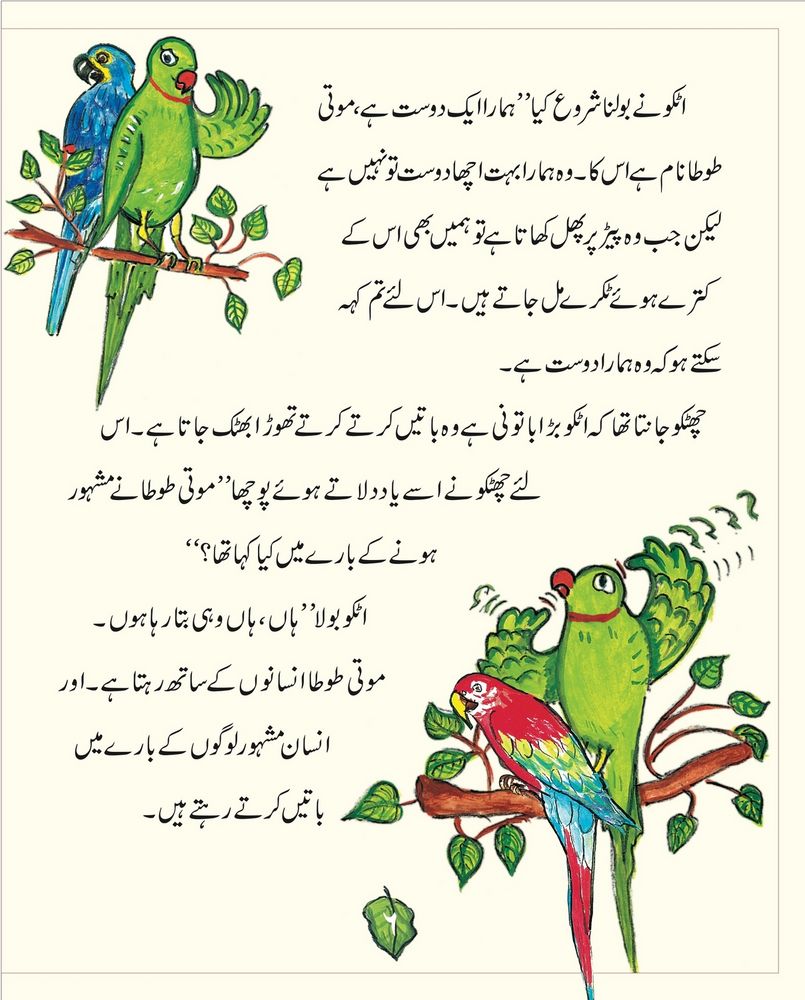 اٹکو نے بولنا شروع کیا ’’ہمارا ایک دوست ہے، موتی
طوطا نام ہے اس کا۔ وہ ہمارا بہت اچھا دوست تو نہیں ہے
لیکن جب وہ پیڑ پر پھل کھاتا ہے تو ہمیں بھی اس کے
کترے ہوئے ٹکرے مل جاتے ہیں۔ اس لئے تم کہہ
سکتے ہو کہ وہ ہمارا دوست ہے۔
چھٹکو جانتا تھا کہ اٹکو بڑا باتونی ہے وہ باتیں کرتے کرتے تھوڑا بھٹک جاتا ہے۔ اس
لئے چھٹکو نے اسے یاد دلاتے ہوئے پوچھا ’’موتی طوطا نے مشہور
ہونے کے بارے میں کیا کہا تھا؟‘‘
اٹکو بولا ’’ہاں، ہاں وہی بتا رہا ہوں۔
موتی طوطا انسانوں کے ساتھ رہتا ہے۔ اور
انسان مشہور لوگوں کے بارے میں
باتیں کرتے رہتے ہیں۔